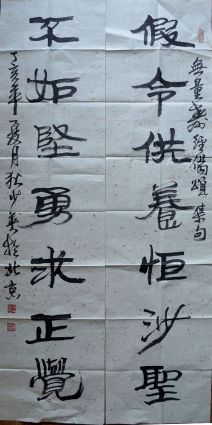 假令供養恒沙聖
無量壽經偈頌集句
不如堅勇求正覺
丁亥年夏月狄少英於北京